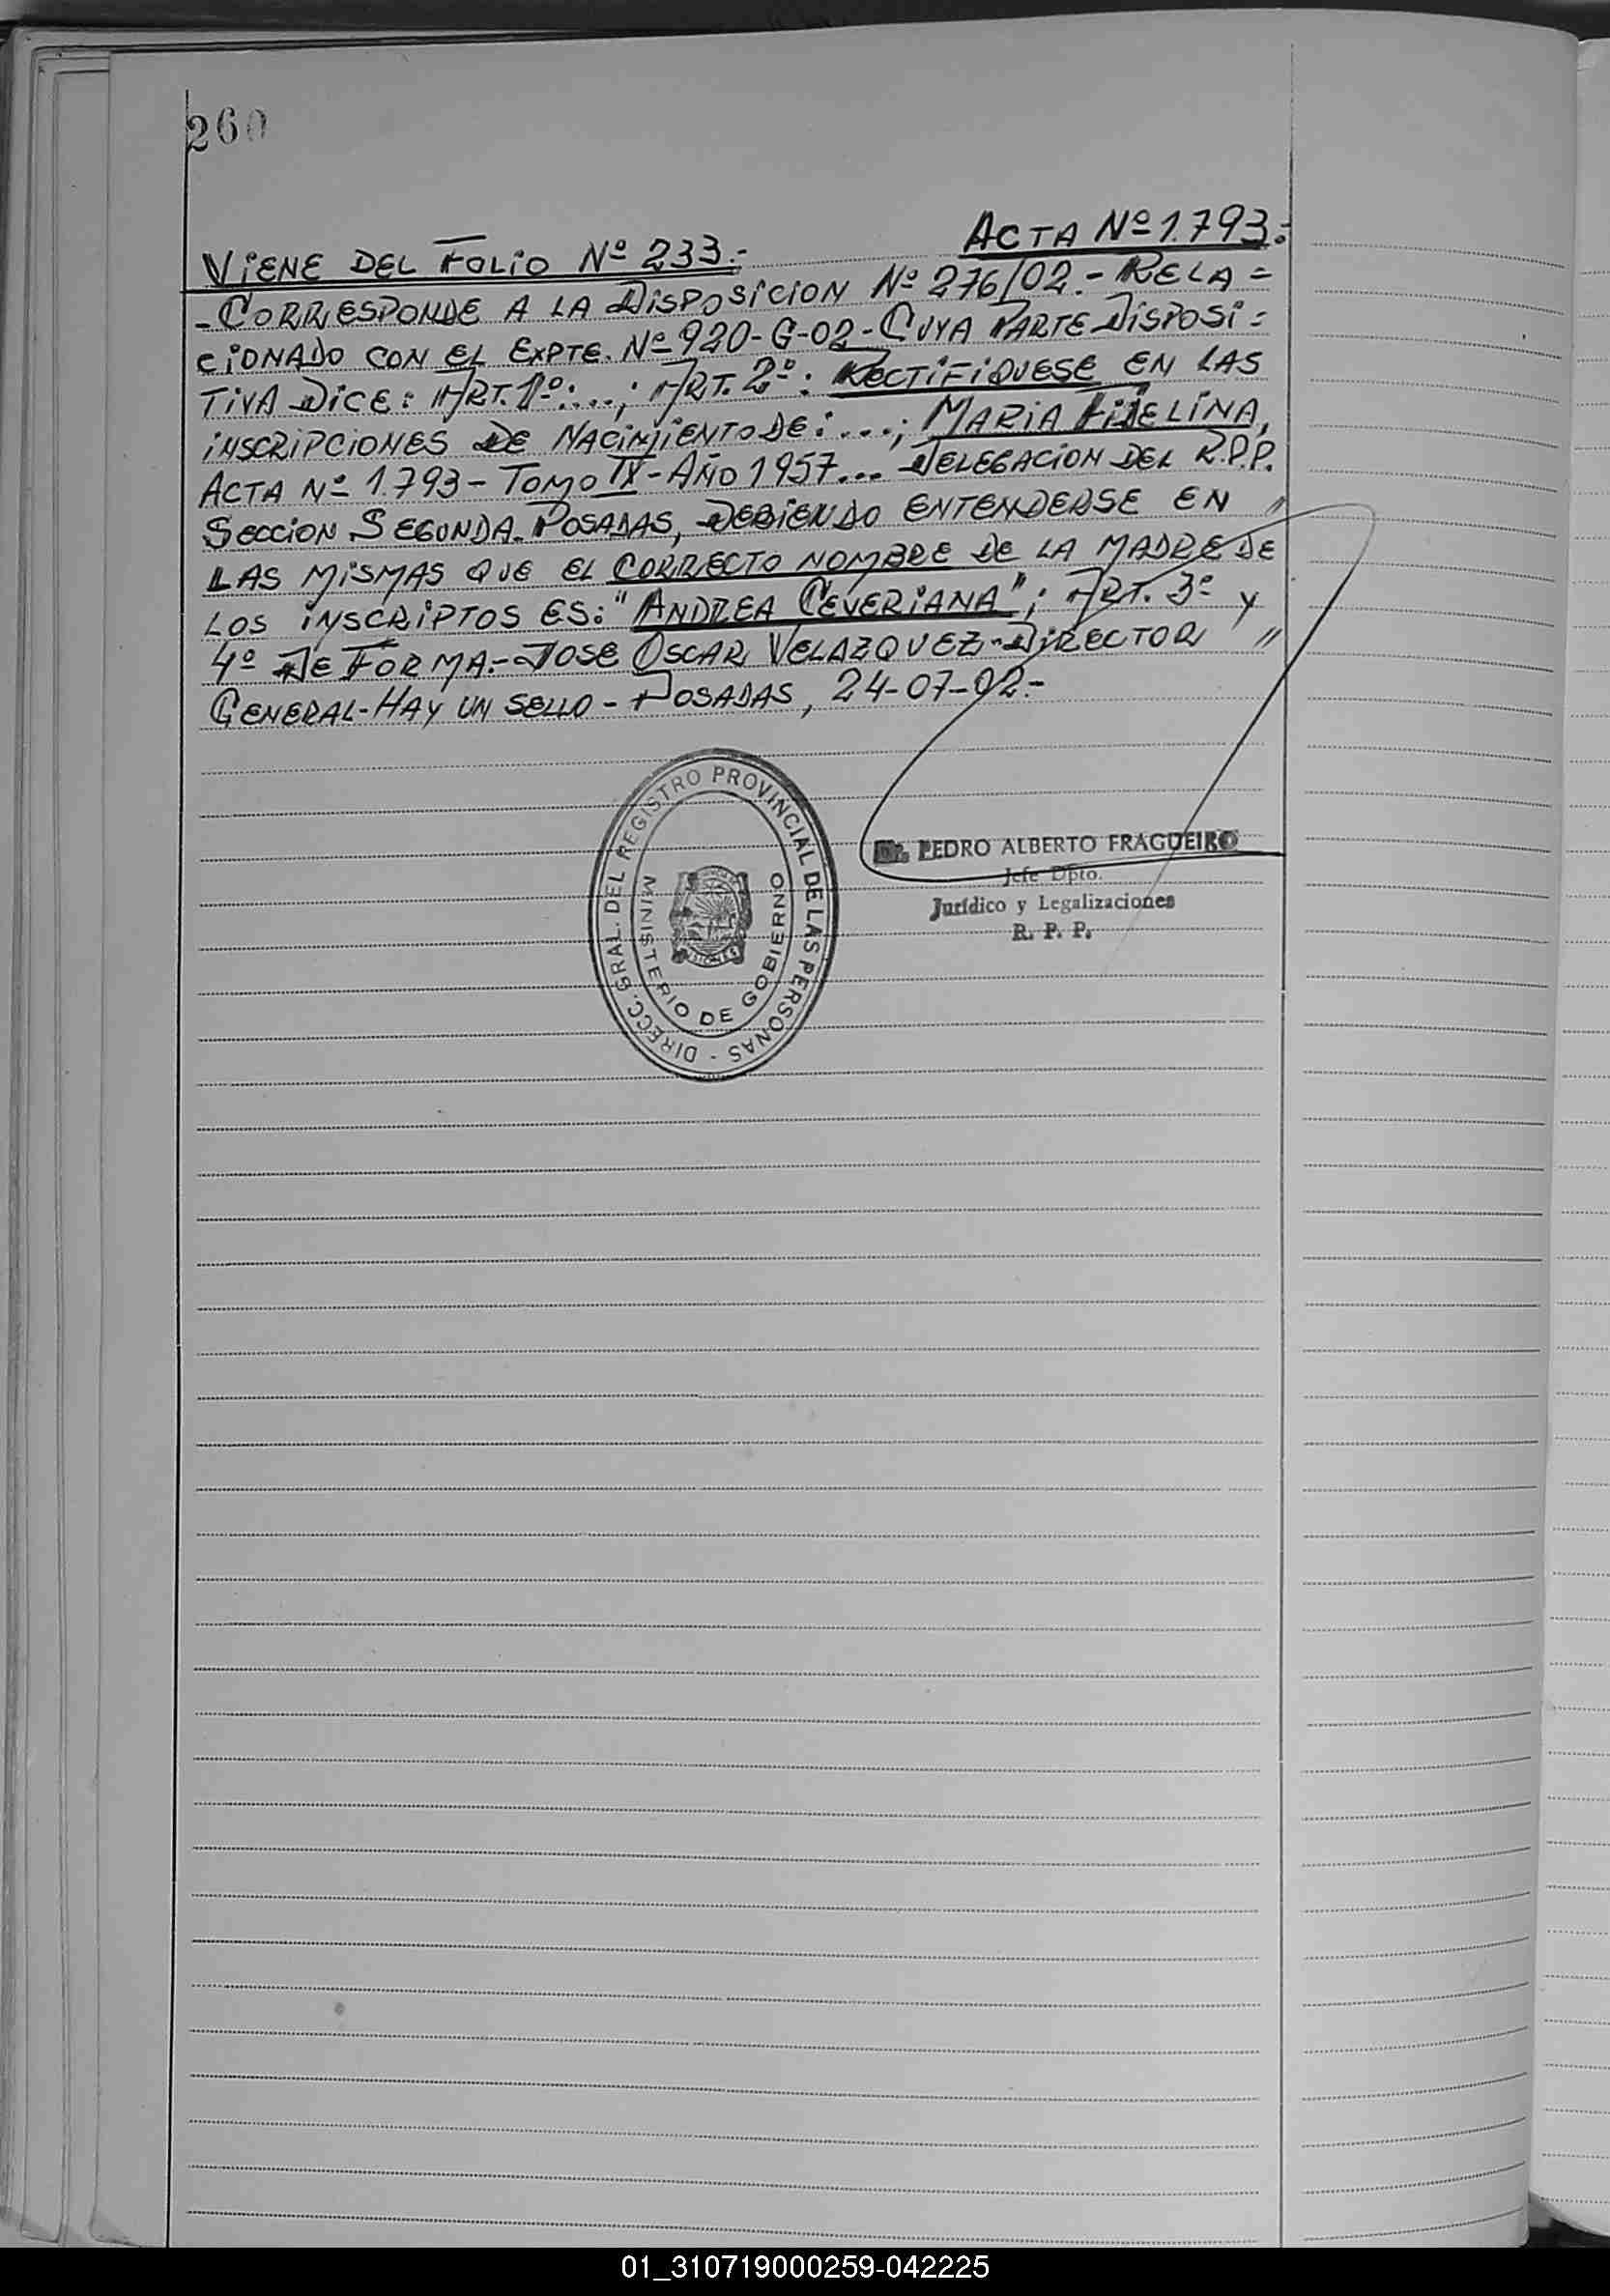 260
ACTA Nº 1.793.-
VIENE DEL FOLIO Nº 233.-
- CORRESPONDE A LA DISPOSICION Nº 276/02.- RELA=
CIONADO CON EL EXPTE. Nº 920-G-02- CUYA PARTE DISPOSI=
TIVA DICE: ART. 1º:...; ART. 2º: RECTIFIQUESE EN LAS
INSCRIPCIONES DE NACIMIENTO DE: ...; MARIA FIDELINA,
ACTA Nº 1.793- TOMO IX- AÑO 1957... DELEGACION DEL R.P.P.
SECCION SEGUNDA- POSADAS, DEBIENDO ENTENDERSE EN "
LAS MISMAS QUE EL CORRECTO NOMBRE DE LA MADRE DE
LOS INSCRIPTOS ES: "ANDREA CEVERIANA"; ART. 3º y
4º DE FORMA.- JOSE OSCAR VELAZQUEZ- DIRECTOR "
GENERAL- HAY UN SELLO - POSADAS, 24-07-02.-
DIRECC. GRAL. DEL REGISTRO PROVINCIAL DE LAS PERSONAS -
MINISTERIO DE GOBIERNO
MISIONES
Dr. PEDRO ALBERTO FRAGUEIRO
Jefe Dpto.
Jurídico y Legalizaciones
R. P. P.
01_310719000259-042225